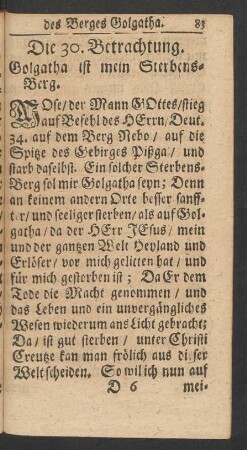 des Berges Golgatha. 83
Die 30. Betrachtung.
Golgatha ist mein Sterbens-
Berg.
MOse/ der Mann GOttes/ stieg
auf Befehl des HErrn/ Deut.
34. auf dem Berg Nebo/ auf die
Spitze des Gebirges Pißga/ und
starb daselbst. Ein solcher Sterbens-
Berg sol mir Golgatha seyn; Denn
an keinem andern Orte besser sanff-
ter/ und seeliger sterben/ als auf Gol-
gatha/ da der HErr JEsus/ mein
und der gantzen Welt Heyland und
Erlöser/ vor mich gelitten hat/ und
für mich gestorben ist; Da Er dem
Tode die Macht genommen/ und
das Leben und ein unvergängliches
Wesen wiederum ans Licht gebracht;
Da/ ist gut sterben/ unter Christi
Creutze kan man frölich aus dieser
Welt scheiden. So wil ich nun auf
D 6 mei-